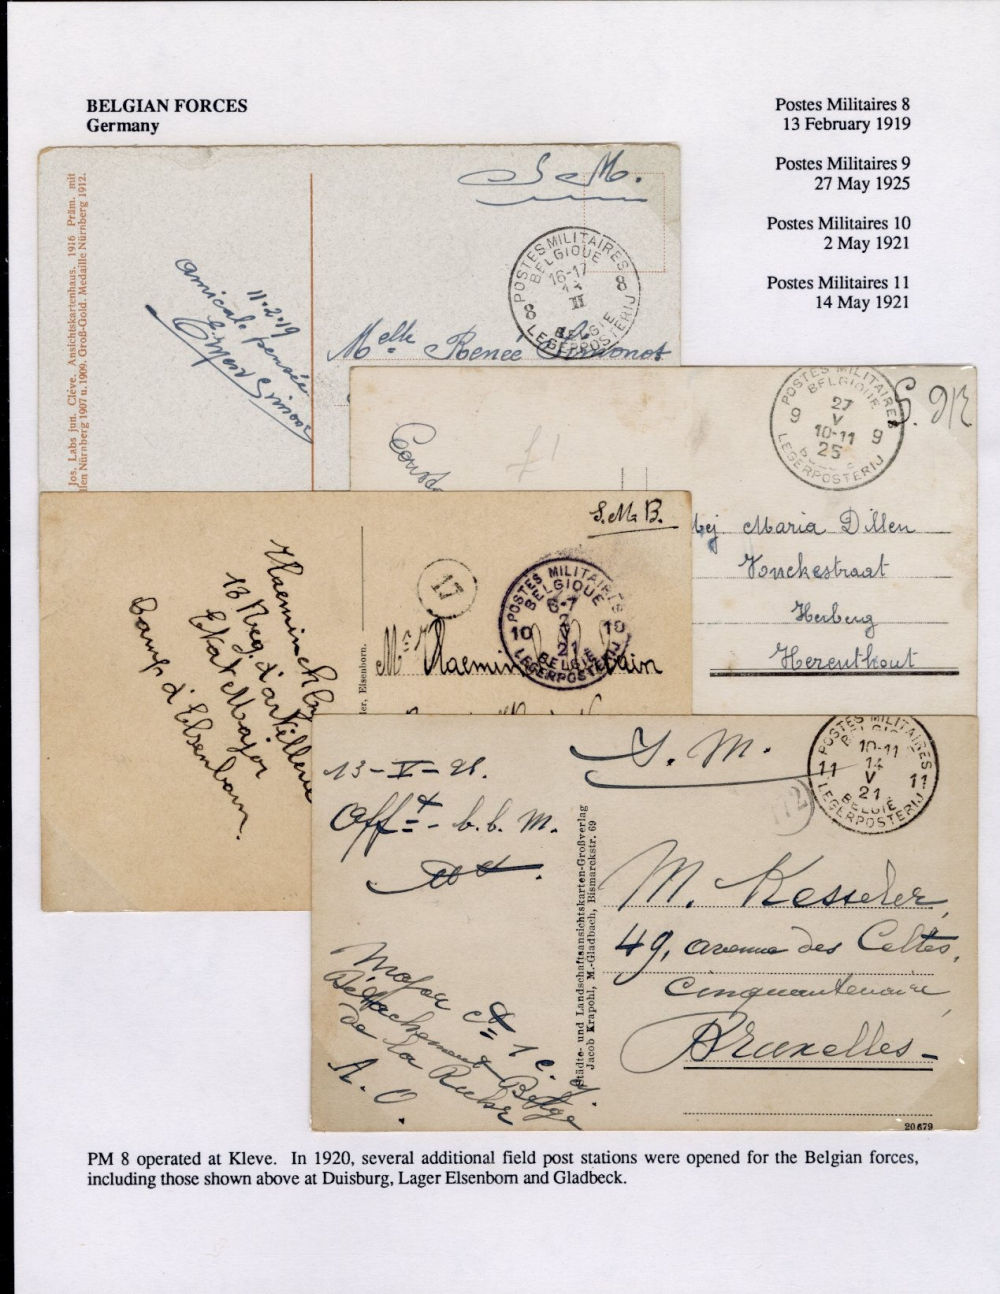 BELGIAN FORCES
Germany
Postes Militaires 8
13 February 1919
Postes Militaires 9
27 May 1925
Postes Militaires 10
2 May 1921
Postes Militaires 11
14 May 1921
Jos. Labs jun. Cléve. Ansichtskartenhaus. 1916 Präm. mit
Nürnberg 1907 u. 1909. Groß-Gold. Medaille Nürnberg 1912.
S M.
POSTES MILITAIRES
BELGIQUE
16-17
13
II
8 8
LEGERPOSTERIJ
11.2.19
amicale pensée
Simon
Melle Renée
POSTES MILITAIRES
BELGIQUE
27
V
9 9
10-11
25
LEGERPOSTERIJ
S. M
Mej Maria Dillen
Vonckestraat
Herberg
Herenthout
S.M.B.
17
POSTES MILITAIRES
BELGIQUE
6-7
2
V
10 10
21
BELGIE
LEGERPOSTERIJ
Elsenborn.
18 Reg. d'artillerie
Etat Major
Camp d'Elsenborn.
S. M.
POSTES MILITAIRES
10-11
14
V
11 11
21
BELGIË
LEGERPOSTERIJ
112
13-V-21.
Aff t - b. b. M.
Städte- und Landschaftsansichtskarten-Großverlag
Jacob Krapohl, M.-Gladbach, Bismarckstr. 69
M. Kesseler,
49, avenue des Celtes,
Cinquantenaire
Bruxelles-
Major
Détachement Belge
de la Ruhr
A. O.
20 679
PM 8 operated at Kleve. In 1920, several additional field post stations were opened for the Belgian forces,
including those shown above at Duisburg, Lager Elsenborn and Gladbeck.